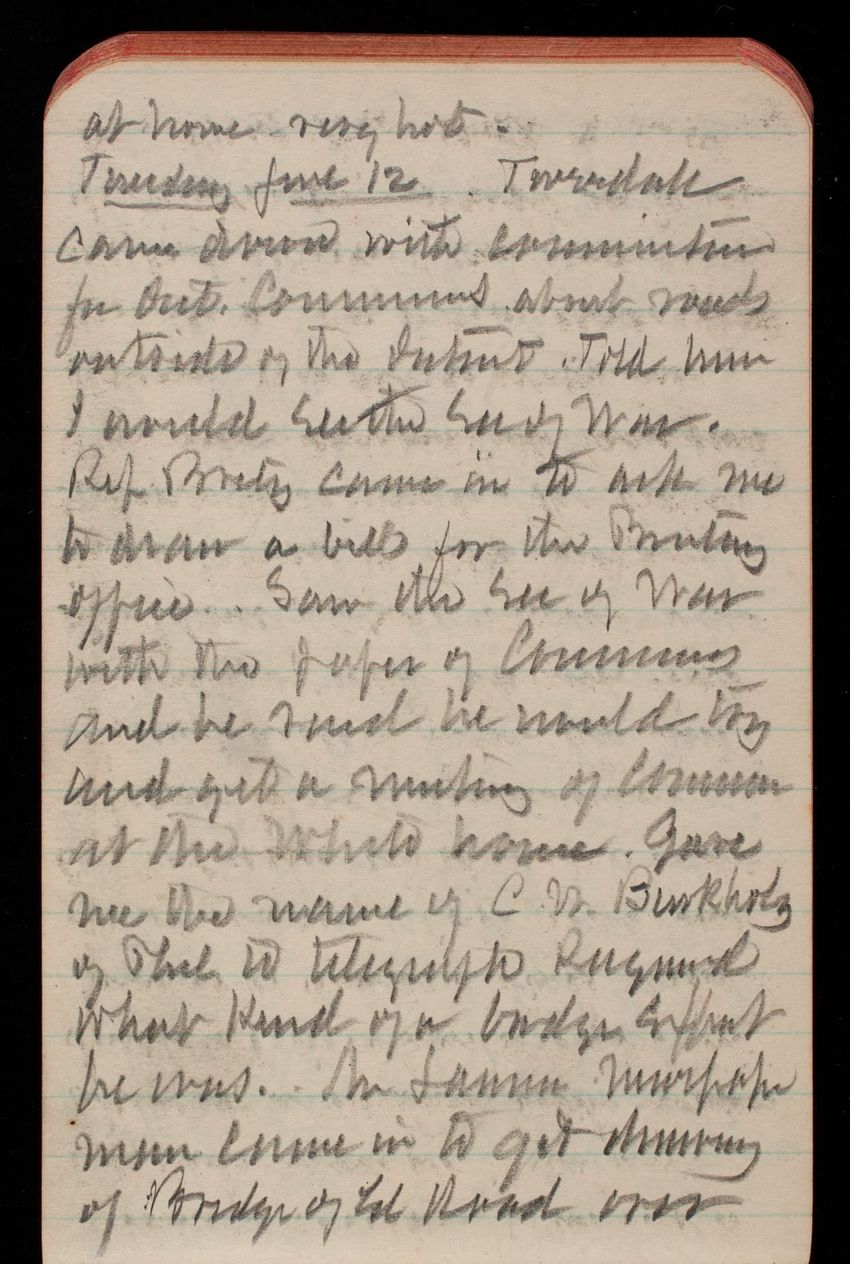 at home very hot.
Tuesday June 12. Truesdale
came down with communication
for Dist. Commrs about roads
outside of the District. Told him
I would see the Sec of War.
Rep Bretz came in to ask me
to draw a bill for the Printing
office. Saw the Sec of War
with the paper of Commrs
and he said he would try
and get a meeting of Common
at the White house. Gave
me the name of C. Burkholz
of Phil to telegraph
What kind of a bridge expert
he was. newspaper
man came in to get drawing
of Bridge of Rd Road over